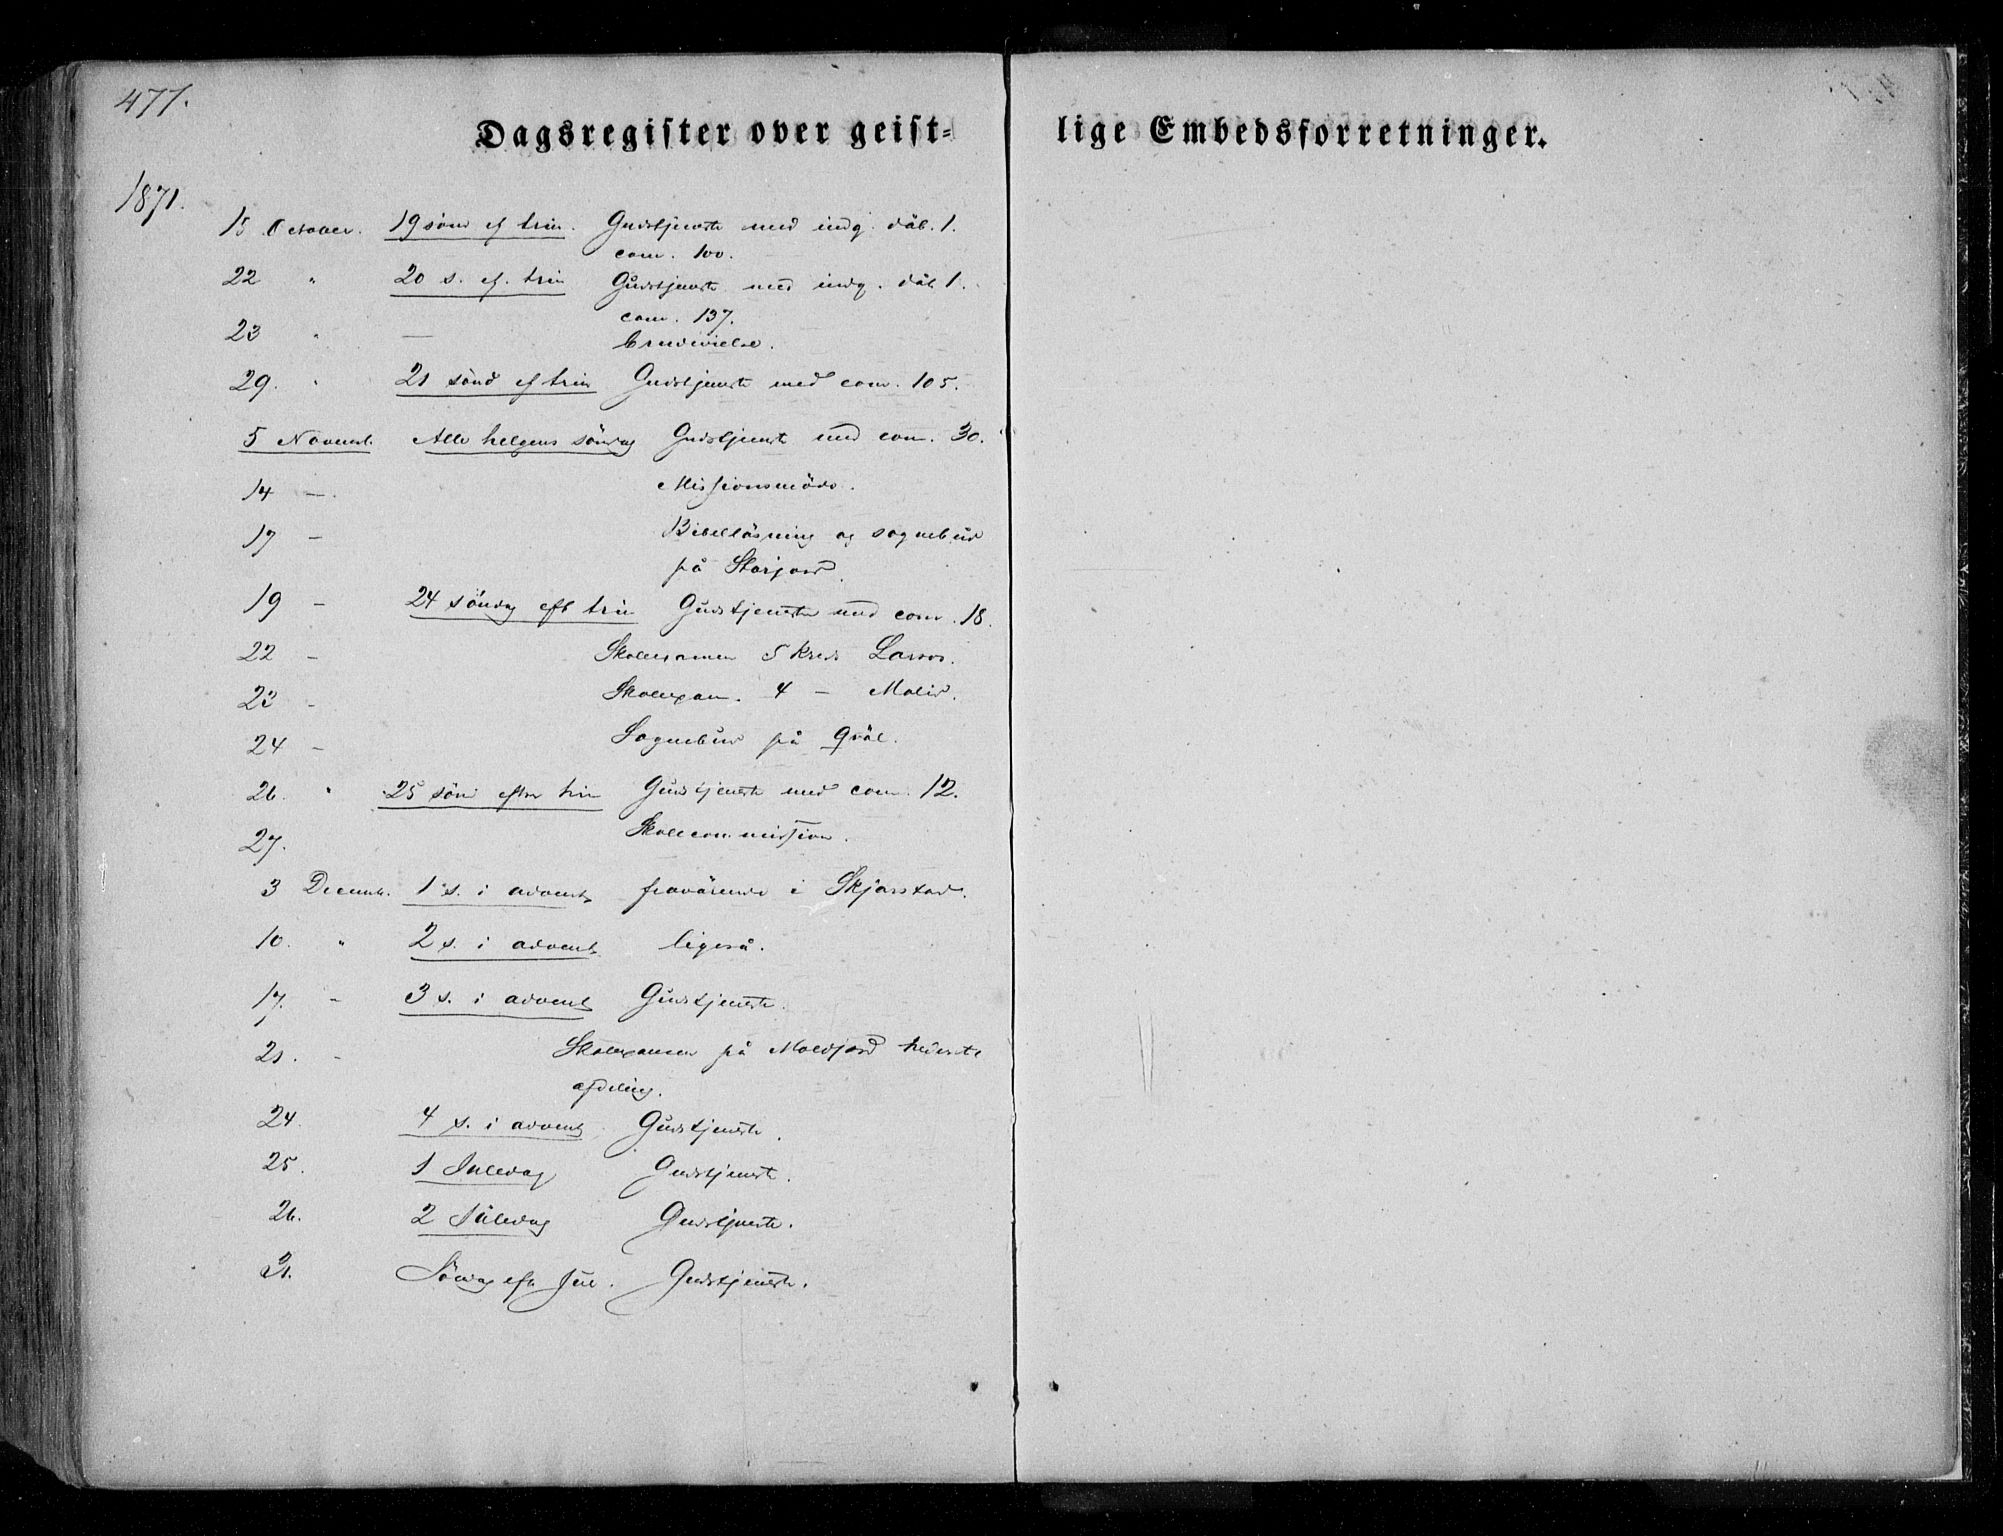 477.
Dagsregister over geist- lige Embedsforretninger.
1871.
15 October. 19 sönd ef trin. Gudstjeneste med indg. dåb. 1.
com. 100.
22 " 20 s. ef. trin Gudstjenste med indg. dåb 1.
com. 137.
23 " — Brudevielse.
29. " 21 sönd ef trin Gudstjenste med com. 105.
5 Novemb. Alle helgens söndag Gudstjenste med com. 30.
14 — Missionsmöde.
17 — Bibelläsning og sognebud
på Storjord.
19 — 24 söndag eft trin Gudstjeneste med com. 18.
22 — Skolexamen 5 Kreds
23 — Skolexam. 4 —
24 — Sognebud på
26. " 25 sönd efter trin Gudstjenste med com. 12.
27. Skolecommission.
3 Decemb. 1 s. i advent fraværende i Skjerstad.
10. " 2 s. i advent ligeså.
17. — 3 s. i advent Gudstjeneste.
21. — Skolexamen på Moldjord nederste
afdeling.
24. 4 s. i advent Gudstjeneste.
25. 1 Juledag Gudstjenste.
26. 2 Juledag Gudstjenste.
31. Söndag eft Jul. Gudstjeneste.